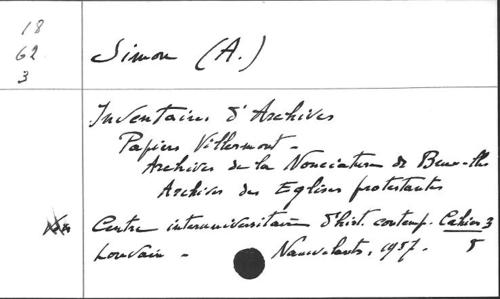 18
62
3
Simon (A.)
Inventaires d'Archives
Papiers Villermont -
Archives de la Nonciature de Bruxelles
Archives des Eglises protestantes
Centre interuniversitaire d'hist. contemp. Cahiers 3
Louvain - Nauwelaerts, 1957. 8